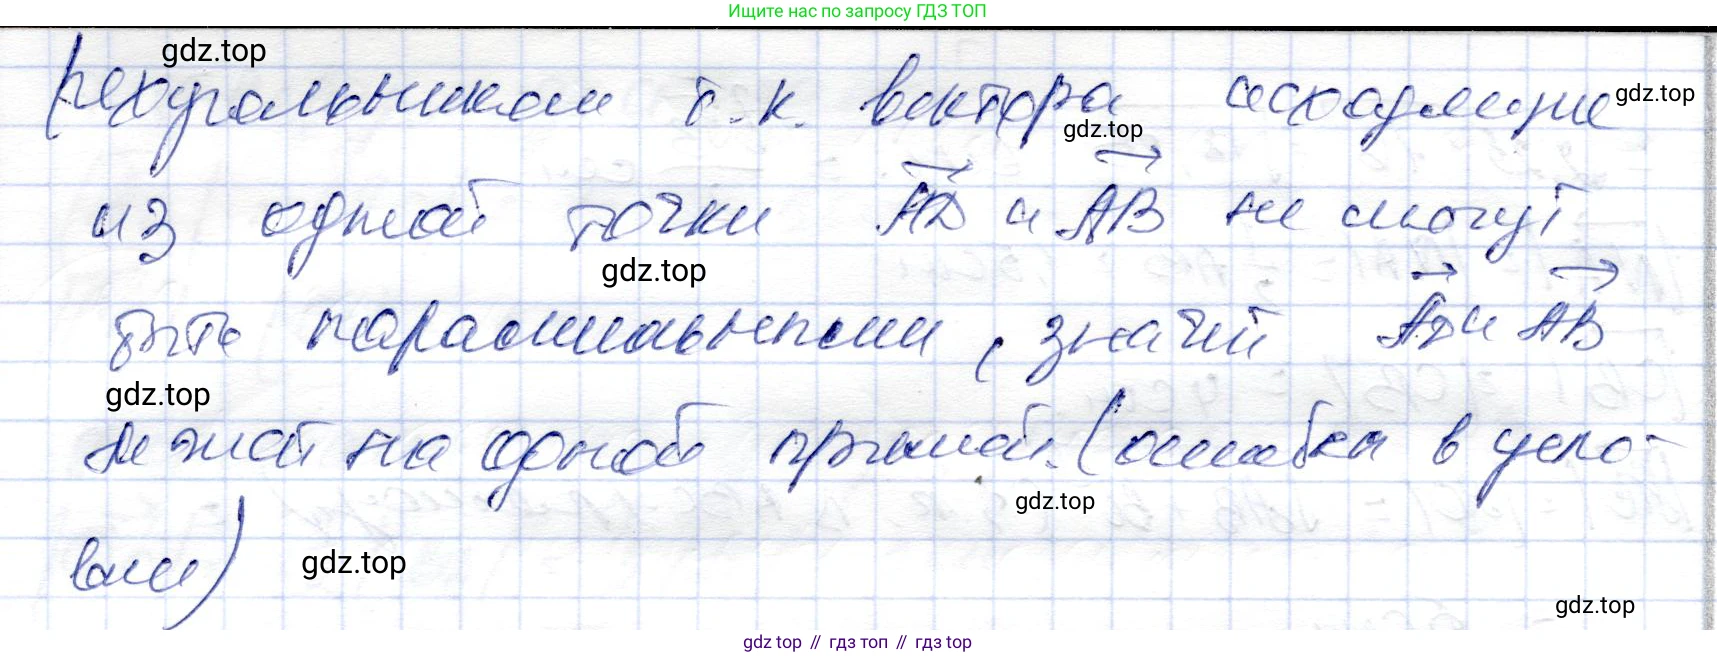 Ищите нас по запросу ГДЗ ТОП
gdz.top
рехугольником т.к. вектора исходящие
gdz.top
gdz.top
из одной точки AD и AB не могут
gdz.top
быть параллельными, значит AD и AB
gdz.top
лежат на одной прямой. (ошибка в усло-
gdz.top
вии)
gdz.top
gdz.top
gdz.top // гдз топ // гдз top